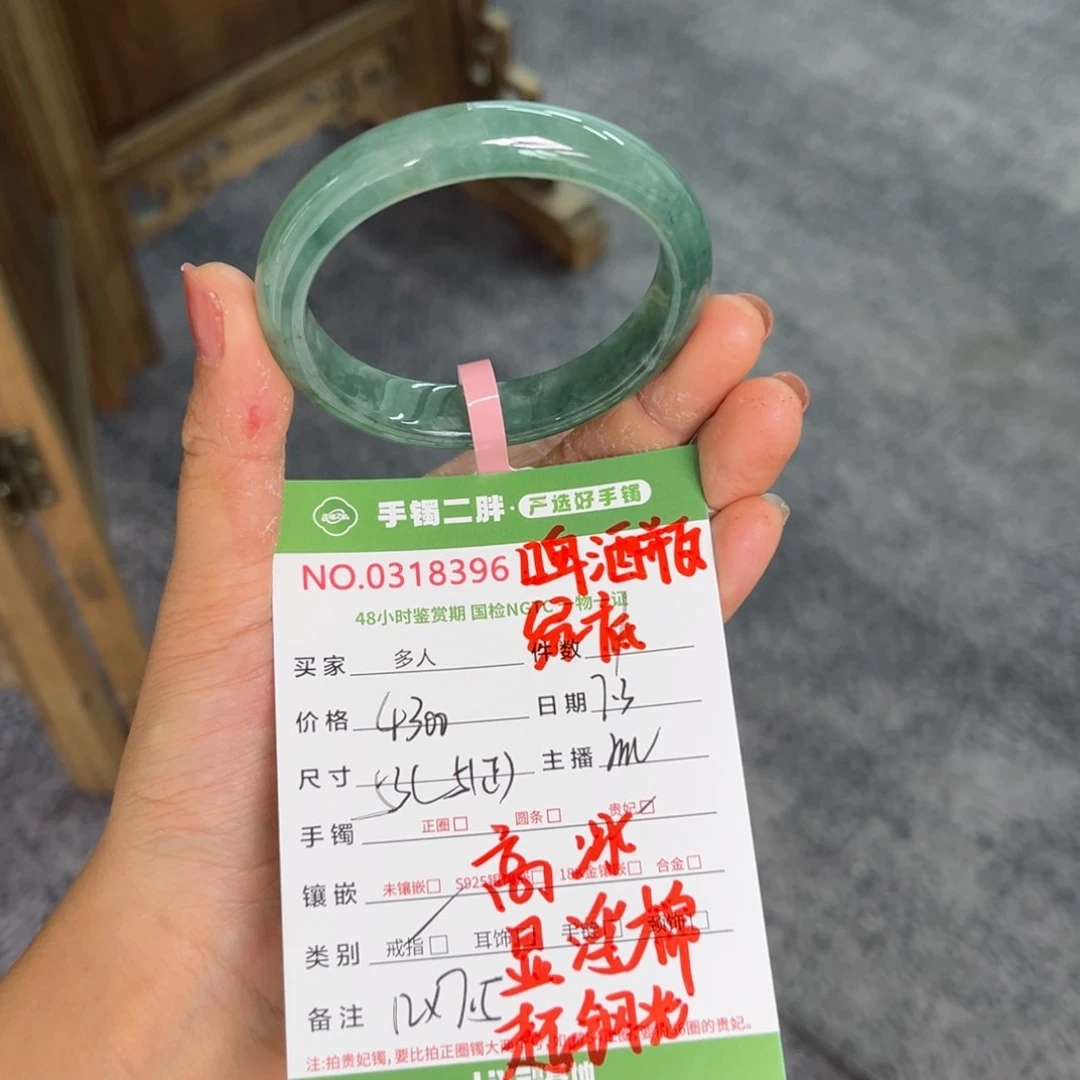 手镯二胖·严选好手镯
NO.0318396 啤酒瓶
48小时鉴赏期 国检NGTC一物一证
绿底
买家 多人 件数
价格 4300 日期 7.3
尺寸 51(正) 主播
手镯 正圈 圆条 贵妃
高冰
镶嵌 未镶嵌 S925银 18K金镶嵌 合金
类别 戒指 耳饰 手链 颈饰
显淫棉
备注 12×7.5
起钢光
注:拍贵妃镯,要比拍正圈镯大两 圈的贵妃。